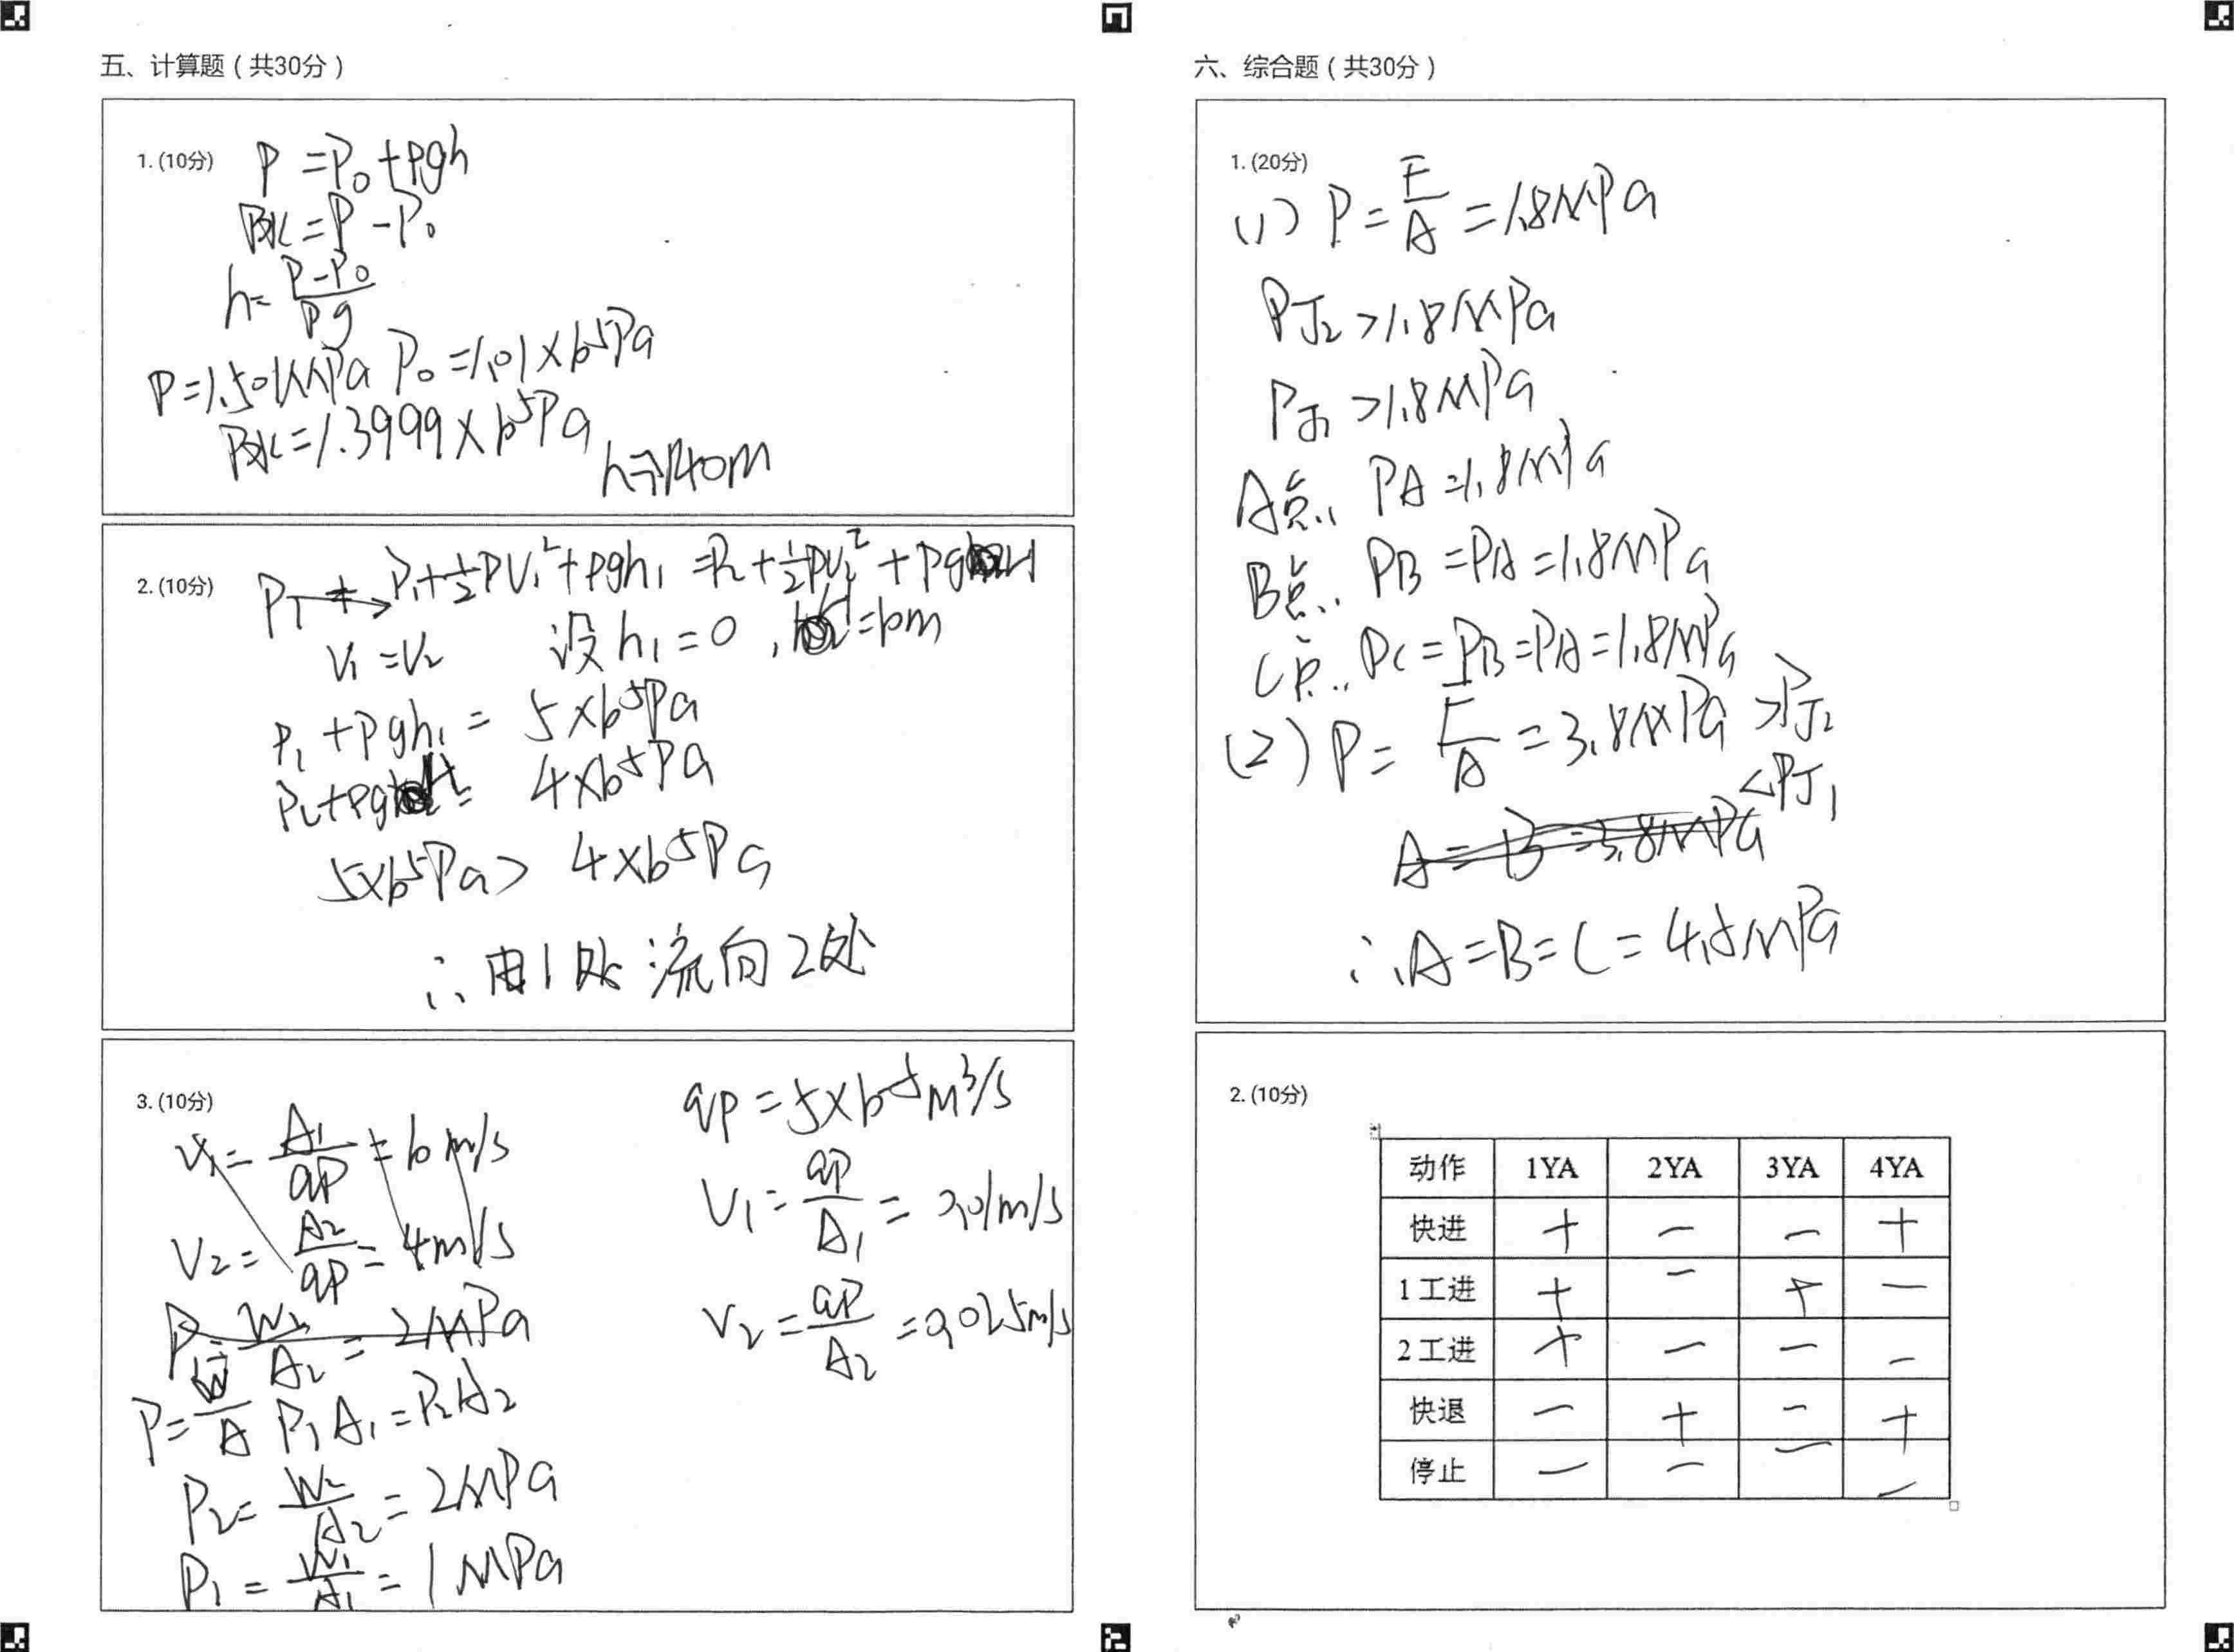 五、计算题(共30分)
1. (10分)
P=P₀+ρgh
P水=P-P₀
h=(P-P₀)/(ρg)
P=1.501MPa P₀=1.01×10⁵Pa
P水=1.3999×10⁵Pa
h=140m
2. (10分)
P₁+½ρV₁²+ρgh₁=P₂+½ρV₂²+ρgH
V₁=V₂ 设h₁=0, H=10m
P₁+ρgh₁= 5×10⁵Pa
P₂+ρgH= 4×10⁵Pa
5×10⁵Pa> 4×10⁵Pa
∴由1处流向2处
3. (10分)
V₁=A₁/qp=10m/s
V₂=A₂/qp=4m/s
P=W₂/A₂=2MPa
P=W/A P₁A₁=P₂A₂
P₂=W₂/A₂=2MPa
P₁=W₁/A₁=1MPa
qp=5×10⁻⁵m³/s
V₁=qp/A₁=0.01m/s
V₂=qp/A₂=0.025m/s
六、综合题(共30分)
1. (20分)
(1) P=F/A=1.8MPa
PJ₂>1.8MPa
PJ₁>1.8MPa
A点: PA=1.8MPa
B点: PB=PA=1.8MPa
C点: PC=PB=PA=1.8MPa
(2) P=F/A=3.8MPa>PJ₂
<PJ₁
A=B=3.8MPa
∴A=B=C=4.5MPa
2. (10分)
动作 1YA 2YA 3YA 4YA
快进 + − − +
1工进 + − + −
2工进 + − − −
快退 − + − +
停止 − − − −